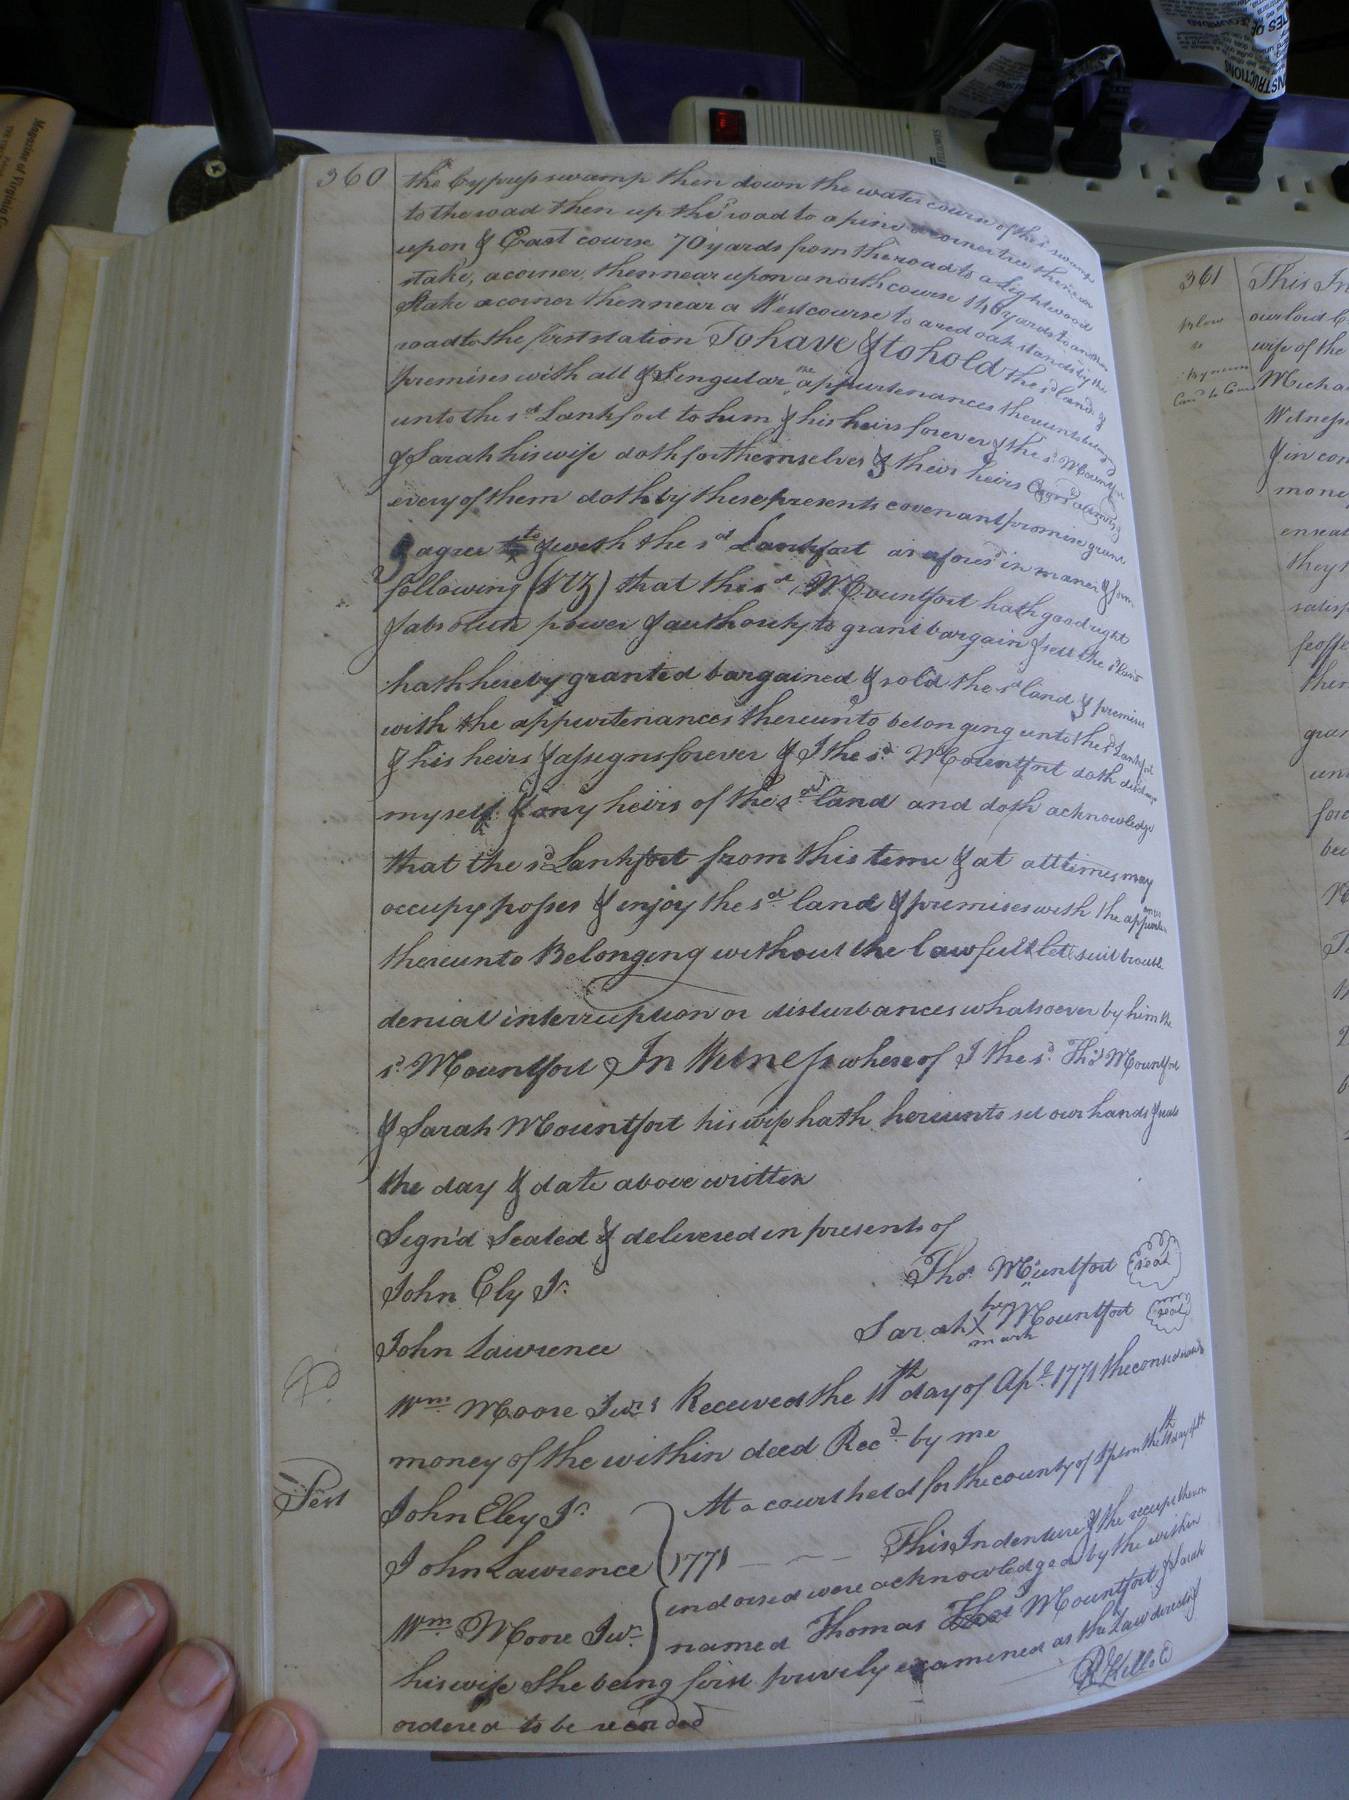 360
the Cypress swamp then down the water course of this swamp
to the road then up the sd road to a pine a corner tree thence
upon & East course 70 yards from the road to a Lightwood
stake, a corner, then near upon a north course 140 yards to another
Stake a corner then near a West course to a red oak stands by the
road to the first station To have & to hold the sd land &
premises with all & Singular the appurtenances thereunto
unto the sd Lankfort to him & his heirs forever & the sd Mountfort
& Sarah his wife doth for themselves & their heirs
every of them doth by these presents covenant promise grant
& agree to & with the sd Lankfort as aforesd in maner & form
following (Viz) that the sd Mountfort hath good right
& absolute power & authority to grant bargain & sell the sd land
hath hereby granted bargained & sold the sd land & premises
with the appurtenances thereunto belonging unto the sd Lankfort
& his heirs & assigns forever & I the sd Mountfort doth
myself & my heirs of the sd land and doth acknowledge
that the sd Lankfort from this time & at all times may
occupy posses & enjoy the sd land & premises with the appurten
thereunto Belonging without the lawfull let suit trouble
denial interruption or disturbances whatsoever by him the
sd Mountfort In Witness whereof I the sd Thos Mountfort
& Sarah Mountfort his wife hath hereunto set our hands & seals
the day & date above written
Sign'd Sealed & delivered in presents of
John Ely Jr. Thos Mountfort seal
John Lawrence Sarah X her mark Mountfort seal
Wm Moore Junr Received the 11th day of Apl 1771 the
money of the within deed Recd by me
Test John Eley Jr. At a court held for the county of the 11th day of
John Lawrence 1771 This Indenture & the receipt thereon
endorsed were acknowledged by the within
Wm Moore Jur. named Thomas Mountfort & Sarah
his wife She being first privily examined as the Law directs &
ordered to be recorded
361
This In
our lord
wife of the
Micha
Witness
& in con
money
they
satisf
feoffe
then
gran